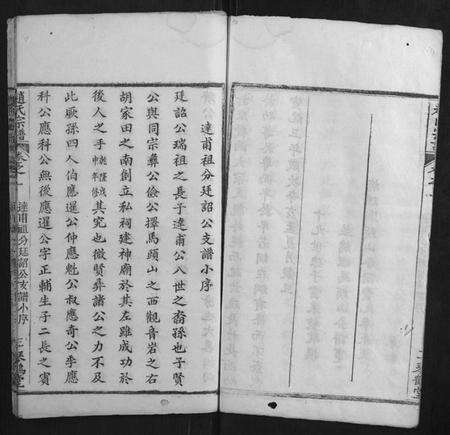 達甫祖分廷詔公支譜小序
廷詔公瑞祖之長子達甫公八世之裔孫也子賢
公與同宗彞公儉公擇馬頭山之西觀音岩之右
胡家田之南創立私祠建神廟於其左雖成功於
後人之手乾隆戊申年修其究也微賢彞諸公之力不及
此厥孫四人伯應暹公仲應魁公叔應奇公季應
科公應科公無後應暹公字正輔生子二長之賓
趙氏宗譜
卷之一
達甫祖分廷詔公支譜小序
三琴鶴堂